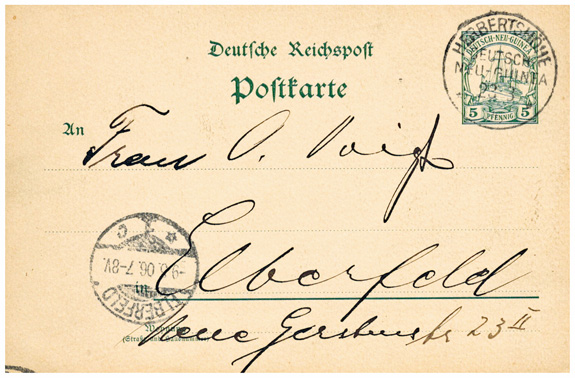 Deutsche Reichspost
Postkarte
HERBERTSHÖHE
DEUTSCH-
NEU-GUINEA
DEUTSCH-NEU-GUINEA
5 PFENNIG 5
An
Frau O. Voigt
Elberfeld
in
ELBERFELD
06. 7-8V.
Neue Gerstenstr 23 II
Wohnung
(Straße und Hausnummer)